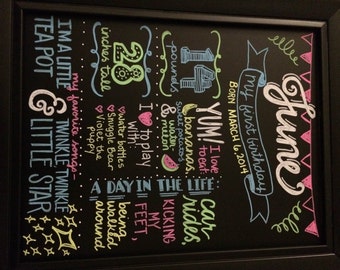 June
my first birthday
BORN MARCH 6, 2014
14
pounds
28
inches tall
YUM! I love
to eat
bananas,
sweet potatoes
& water
melon
I ♥ to play
with:
♥ water bottles
♥ Snuggle Bear
♥ Violet the
Puppy
A DAY IN THE LIFE
car
rides,
KICKING
MY
FEET,
being
walked
around
my favorite songs
I'M A LITTLE
TEAPOT
&
TWINKLE TWINKLE
LITTLE STAR